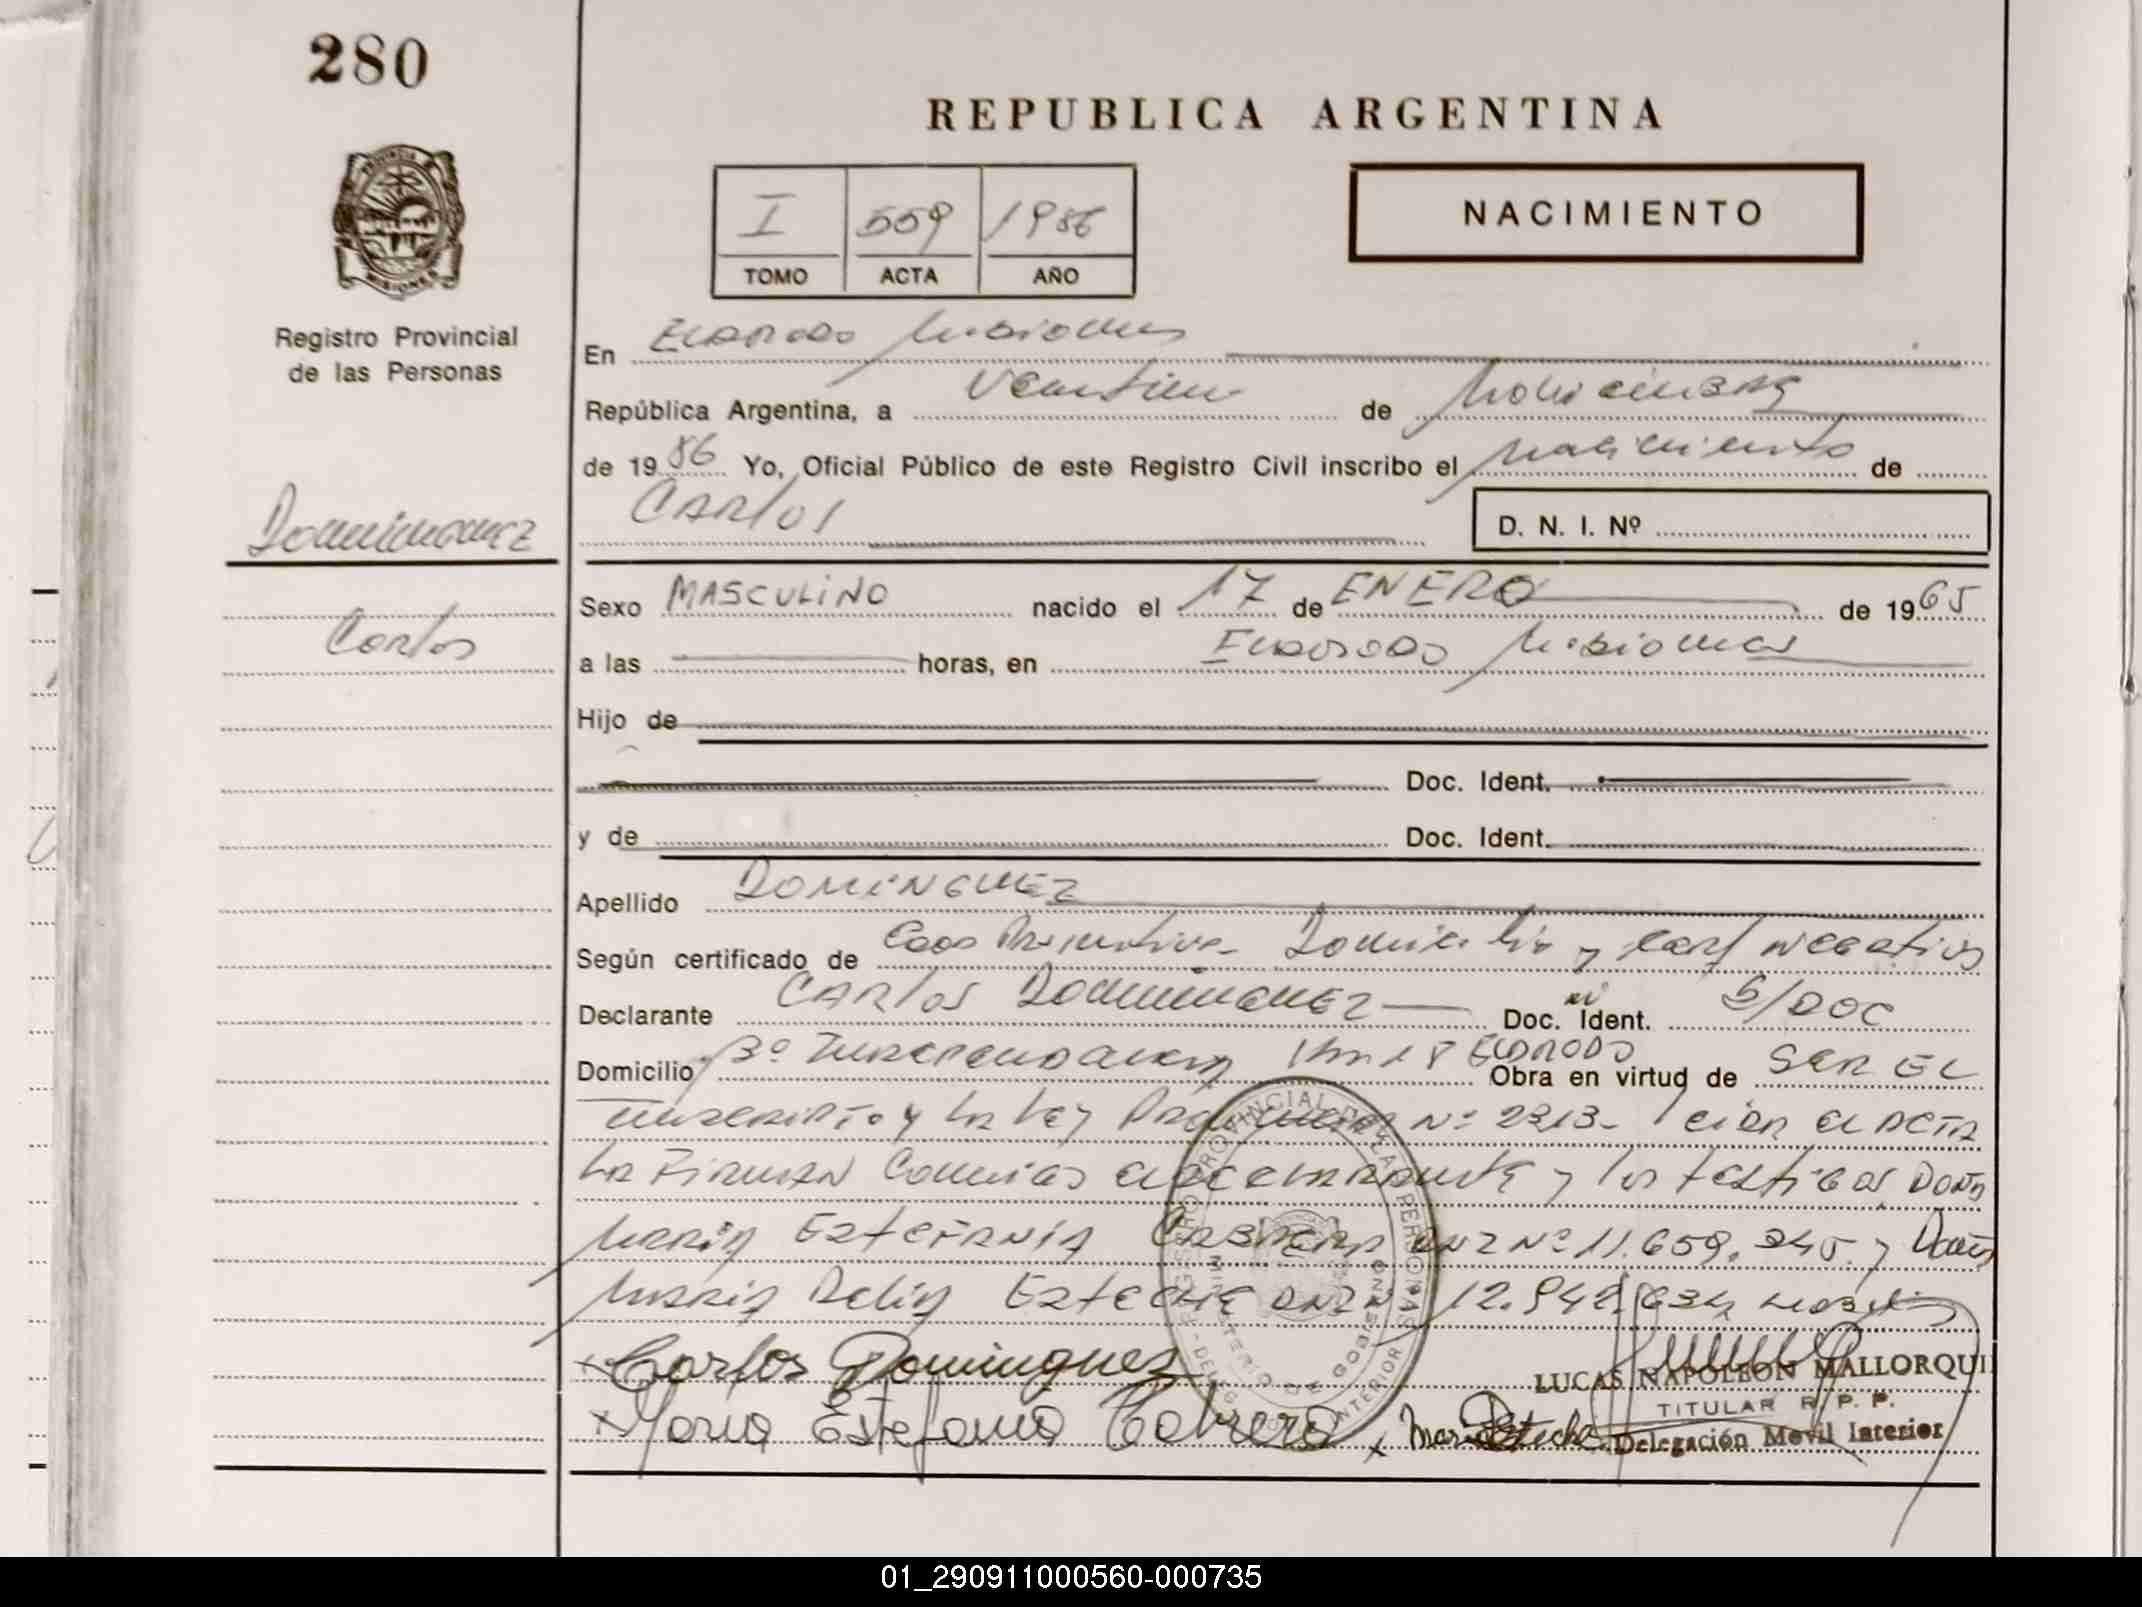 280
REPUBLICA ARGENTINA
I 559 1986
TOMO ACTA AÑO
NACIMIENTO
Registro Provincial
de las Personas
En Eldorado Misiones
República Argentina, a de Noviembre
de 1986 Yo, Oficial Público de este Registro Civil inscribo el nacimiento de
Carlos
D. N. I. Nº
Dominguez
Carlos
Sexo MASCULINO nacido el 17 de ENERO de 1965
a las horas, en Eldorado Misiones
Hijo de
Doc. Ident.
y de Doc. Ident.
Apellido DOMINGUEZ
Según certificado de Edad Presuntiva Domicilio y Cert negativo
Declarante CARLOS DOMINGUEZ Doc. Ident. S/DOC
Domicilio Bº Independencia Km 18 ELDORADO Obra en virtud de SER EL
inscripto y la Ley Nº 2313 el ACTA
La Firman Conmigo el declarante y los testigos Doña
Maria Estefania Cabrera DNI Nº 11.659.345 y Doña
Maria Delia Esteche DNI Nº 12.942.634
Carlos Dominguez
Maria Estefania Cabrera
LUCAS NAPOLEON MALLORQUI
TITULAR R. P. P.
Delegación Movil Interior
01_290911000560-000735